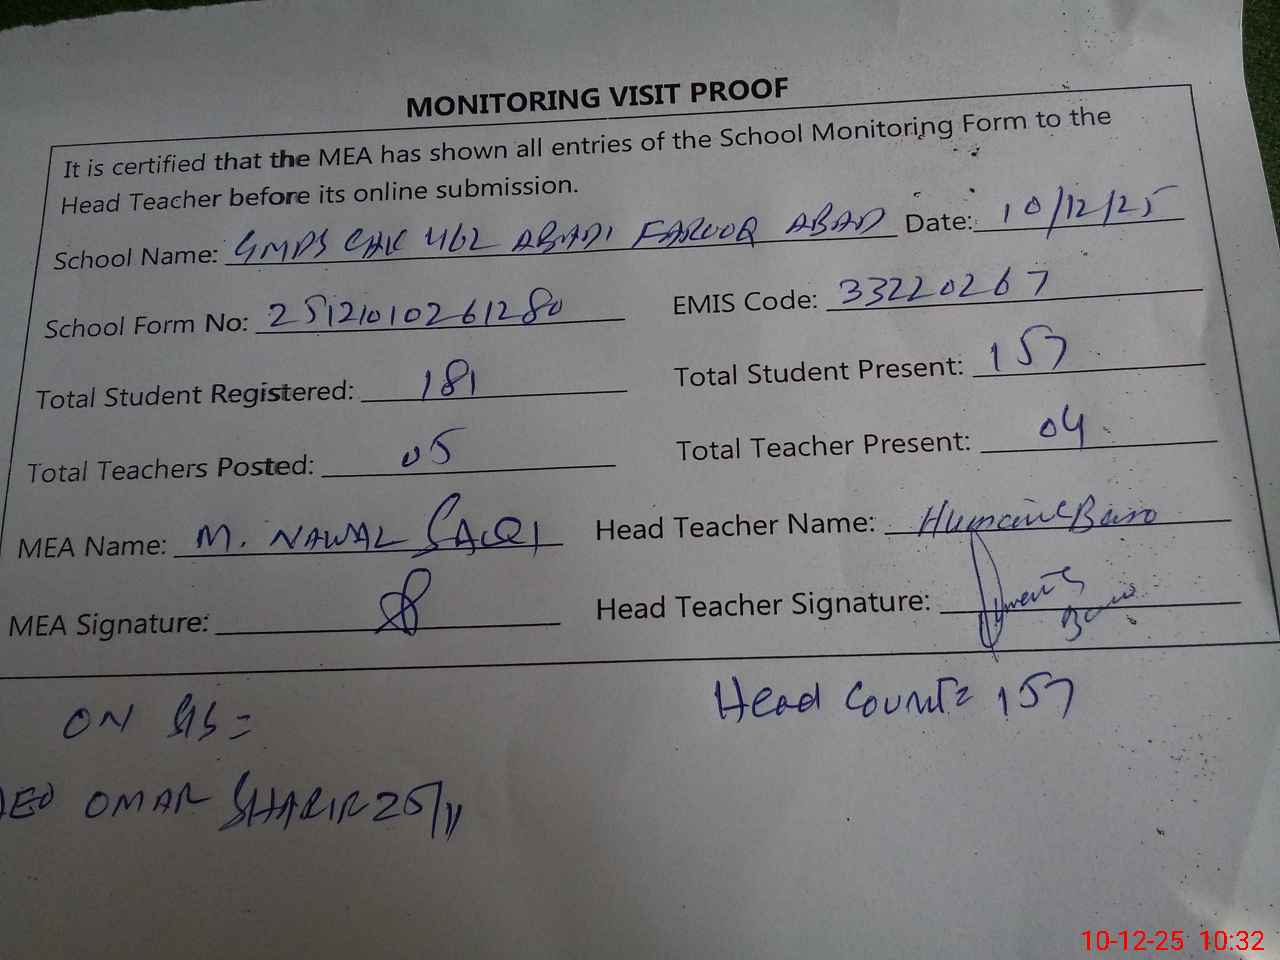 MONITORING VISIT PROOF
It is certified that the MEA has shown all entries of the School Monitoring Form to the
Head Teacher before its online submission.
School Name: GMPS CHK 462 ABADI FAROOQ ABAD Date: 10/12/25
School Form No: 25121010261280 EMIS Code: 33220267
Total Student Registered: 181 Total Student Present: 157
Total Teachers Posted: 05 Total Teacher Present: 04
MEA Name: M. NAWAL SAQI Head Teacher Name: Bano
MEA Signature: Head Teacher Signature:
ON SIS = Head Count = 157
OMAR 25/11
10-12-25 10:32